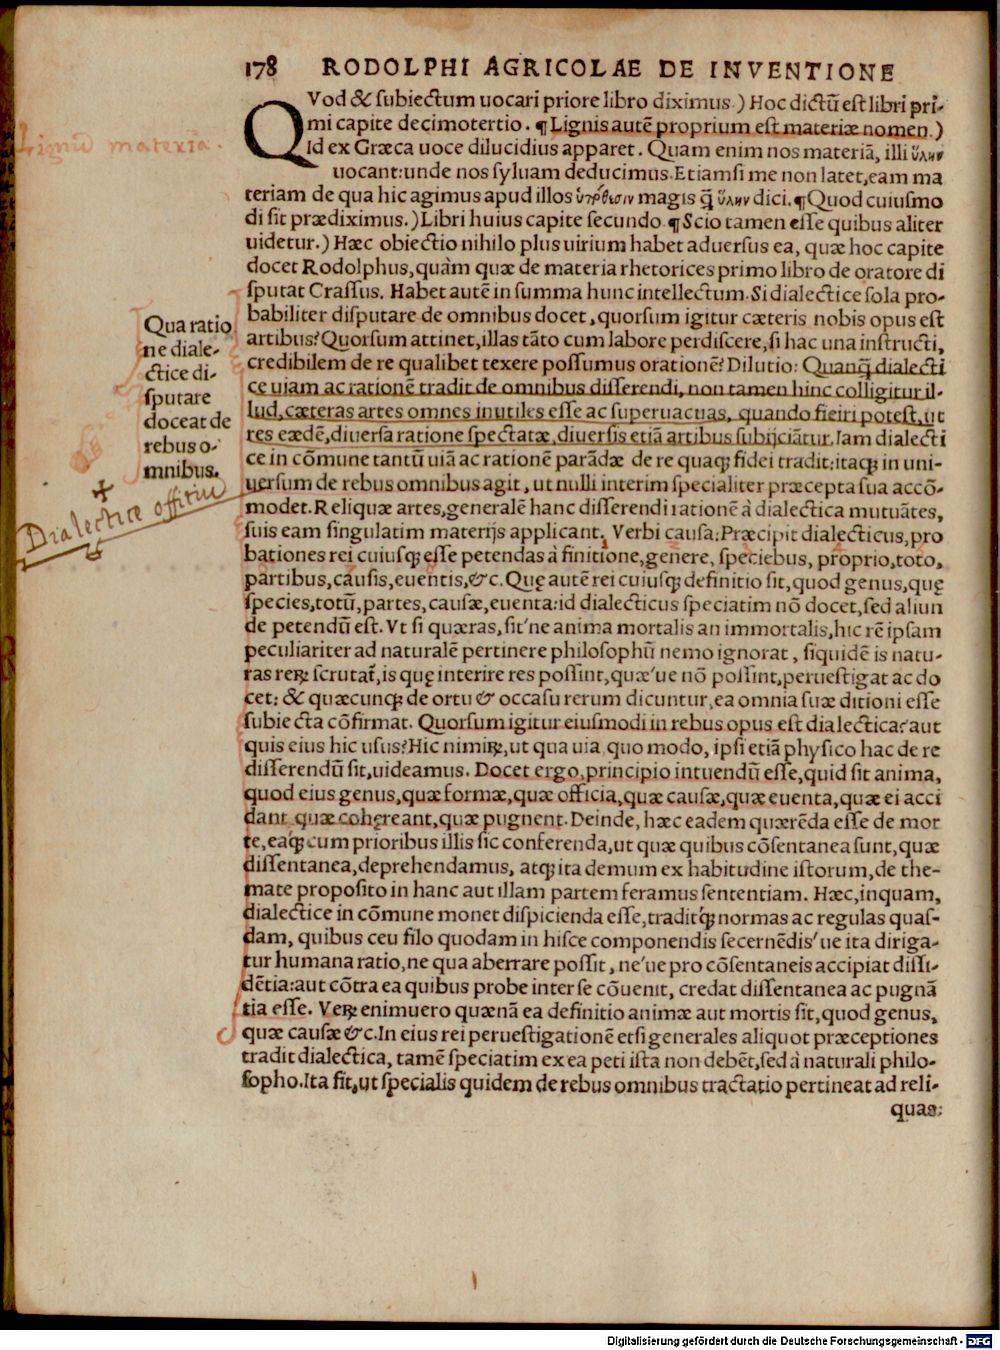 178 RODOLPHI AGRICOLAE DE INVENTIONE
QVod & ſubiectum uocari priore libro diximus.) Hoc dictũ eſt libri pri-
mi capite decimotertio. ¶Lignis autẽ proprium eſt materiæ nomen.)
Id ex Græca uoce dilucidius apparet. Quam enim nos materiã, illi ὕλην
uocant:unde nos ſyluam deducimus.Etiamſi me non latet,eam ma
teriam de qua hic agimus apud illos magis q̃ ὕλην dici.¶Quod cuiuſmo
di ſit prædiximus.)Libri huius capite ſecundo.¶Scio tamen eſſe quibus aliter
uidetur.) Hæc obiectio nihilo plus uirium habet aduerſus ea, quæ hoc capite
docet Rodolphus,quàm quæ de materia rhetorices primo libro de oratore di
ſputat Craſſus. Habet autẽ in ſumma hunc intellectum.Si dialectice ſola pro-
babiliter diſputare de omnibus docet,quorſum igitur cæteris nobis opus eſt
artibus?Quorſum attinet,illas tãto cum labore perdiſcere,ſi hac una inſtructi,
credibilem de re qualibet texere poſſumus orationẽ? Dilutio: Quanq̃ dialecti
ce uiam ac rationẽ tradit de omnibus diſſerendi, non tamen hinc colligitur il-
lud,cæteras artes omnes inutiles eſſe ac ſuperuacuas, quando fieiri poteſt,ut
res eædẽ,diuerſa ratione ſpectatæ,diuerſis etiã artibus ſubijciãtur.Iam dialecti
ce in cõmune tantũ uiã ac rationẽ parãdæ de re quaqꝫ fidei tradit:itaqꝫ in uni-
uerſum de rebus omnibus agit, ut nulli interim ſpecialiter præcepta ſua accõ-
modet.Reliquæ artes,generalẽ hanc diſſerendi rationẽ à dialectica mutuãtes,
ſuis eam ſingulatim materijs applicant. Verbi cauſa:Præcipit dialecticus,pro
bationes rei cuiuſqꝫ eſſe petendas à finitione,genere, ſpeciebus, proprio,toto,
partibus,cauſis,euentis,&c.Quę autẽ rei cuiuſqꝫ definitio ſit,quod genus,quę
ſpecies,totũ,partes,cauſæ,euenta:id dialecticus ſpeciatim nõ docet,ſed aliun
de petendũ eſt. Vt ſi quæras,ſit'ne anima mortalis an immortalis,hic rẽ ipſam
peculiariter ad naturalẽ pertinere philoſophũ nemo ignorat, ſiquidẽ is natu-
ras reꝝ ſcrutat᷑,is quę interire res poſſint,quæ'ue nõ poſſint,perueſtigat ac do
cet: & quæcunqꝫ de ortu & occaſu rerum dicuntur,ea omnia ſuæ ditioni eſſe
ſubiecta cõfirmat. Quorſum igitur eiuſmodi in rebus opus eſt dialectica?aut
quis eius hic uſus?Hic nimiꝝ,ut qua uia quo modo, ipſi etiã phyſico hac de re
diſſerendũ ſit,uideamus. Docet ergo,principio intuendũ eſſe,quid ſit anima,
quod eius genus,quæ formæ,quæ officia,quæ cauſæ,quæ euenta,quæ ei acci
dant quæ cohęreant,quæ pugnent.Deinde, hæc eadem quærẽda eſſe de mor
te,eaqꝫ cum prioribus illis ſic conferenda,ut quæ quibus cõſentanea ſunt,quæ
diſſentanea,deprehendamus, atqꝫ ita demum ex habitudine iſtorum,de the-
mate propoſito in hanc aut illam partem feramus ſententiam. Hæc,inquam,
dialectice in cõmune monet diſpicienda eſſe,traditqꝫ normas ac regulas quaſ-
dam, quibus ceu filo quodam in hiſce componendis ſecernẽdis'ue ita diriga-
tur humana ratio,ne qua aberrare poſſit, ne'ue pro cõſentaneis accipiat diſſi-
dẽtia:aut cõtra ea quibus probe inter ſe cõuenit, credat diſſentanea ac pugnã
tia eſſe. Veꝝ enimuero quænã ea definitio animæ aut mortis ſit,quod genus,
quæ cauſæ &c.In eius rei perueſtigationẽ etſi generales aliquot præceptiones
tradit dialectica, tamẽ ſpeciatim ex ea peti iſta non debẽt,ſed à naturali philo-
ſopho.Ita fit,ut ſpecialis quidem de rebus omnibus tractatio pertineat ad reli-
quas:
Lignũ materia.
Qua ratio
ne diale-
ctice di-
ſputare
doceat de
rebus o-
mnibus.
Dialectice offitiũ
Digitalisierung gefördert durch die Deutsche Forschungsgemeinschaft - DFG